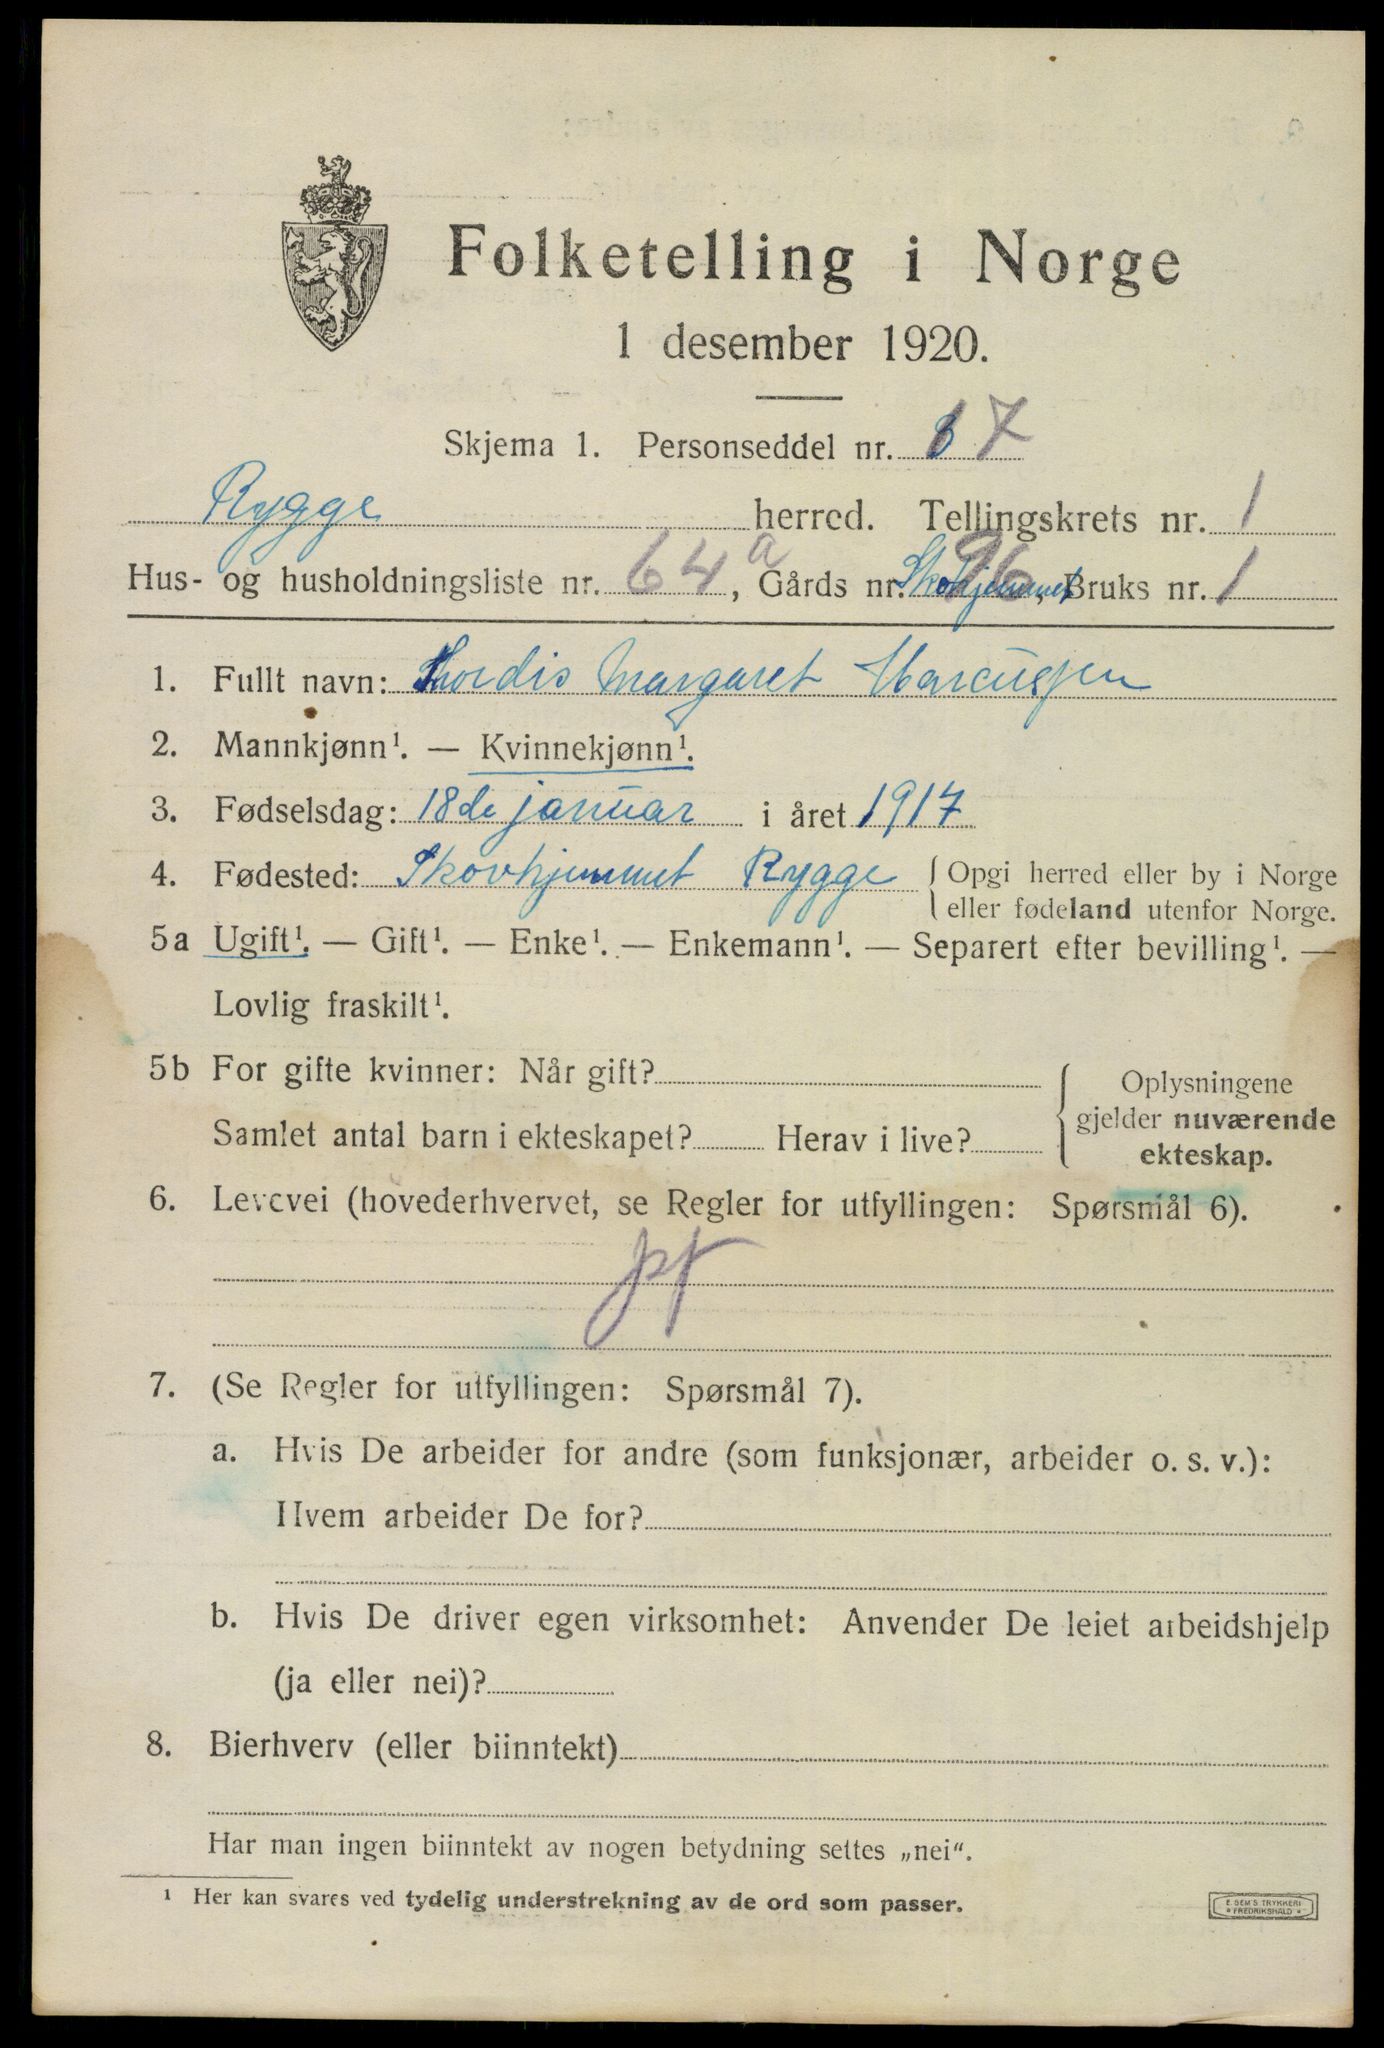 Folketelling i Norge
1 desember 1920.
Skjema 1. Personseddel nr. 7
Rygge herred. Tellingskrets nr. 1
Hus- og husholdningsliste nr. 64 a, Gårds nr. Skovhjemmet 96, Bruks nr. 1
1. Fullt navn: Thordis Margaret Marcussen
2. Mannkjønn¹. — Kvinnekjønn¹.
3. Fødselsdag: 18de januar i året 1917
4. Fødested: Skovhjemmet Rygge { Opgi herred eller by i Norge
eller fødeland utenfor Norge.
5a Ugift¹. — Gift¹. — Enke¹. — Enkemann¹. — Separert efter bevilling¹. —
Lovlig fraskilt¹.
5b For gifte kvinner: Når gift?
Samlet antal barn i ekteskapet? Herav i live?
{ Oplysningene
gjelder nuværende
ekteskap.
6. Levevei (hovederhvervet, se Regler for utfyllingen: Spørsmål 6).
7. (Se Regler for utfyllingen: Spørsmål 7).
a. Hvis De arbeider for andre (som funksjonær, arbeider o. s. v.):
Hvem arbeider De for?
b. Hvis De driver egen virksomhet: Anvender De leiet arbeidshjelp
(ja eller nei)?
8. Bierhverv (eller biinntekt)
Har man ingen biinntekt av nogen betydning settes „nei“.
¹ Her kan svares ved tydelig understrekning av de ord som passer.
E. SEM'S TRYKKERI
* FREDRIKSHALD *